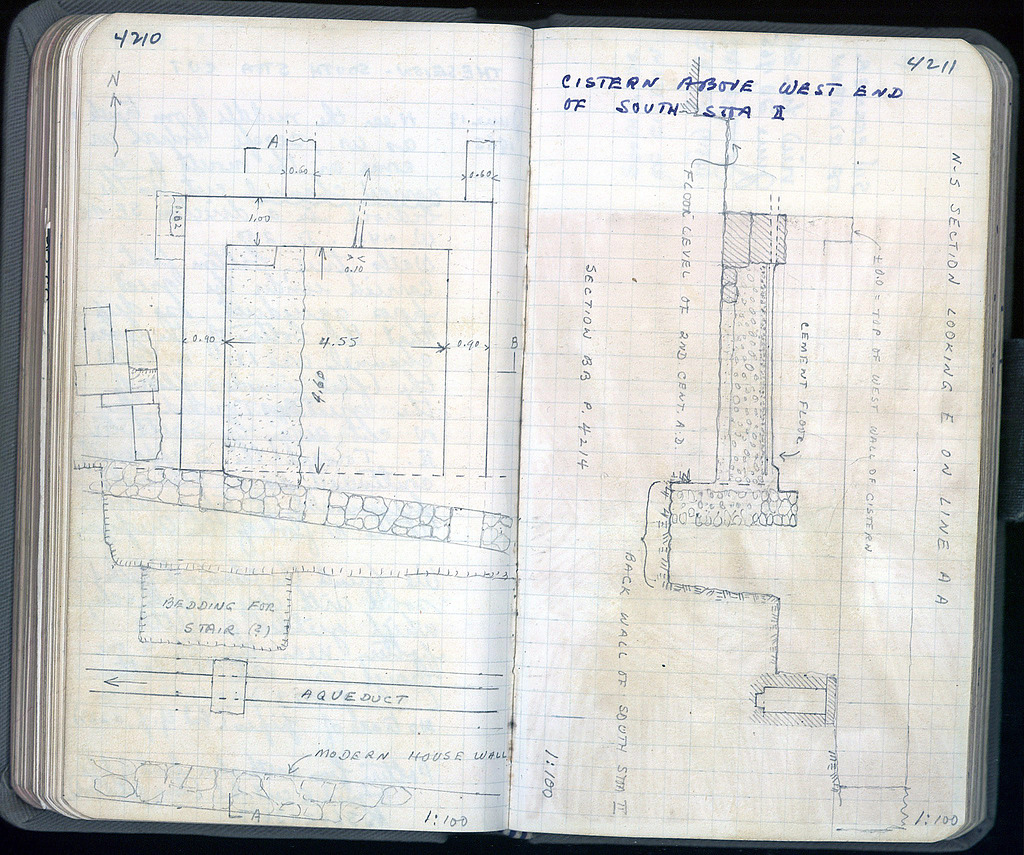 4210
N
A
0.60
0.60
1.82
1.00
0.10
0.90
4.55
0.90
B
4.60
BEDDING FOR
STAIR (?)
AQUEDUCT
MODERN HOUSE WALL
A
1:100
4211
CISTERN ABOVE WEST END
OF SOUTH STOA II
N-S SECTION LOOKING E ON LINE A A
±0.0 = TOP OF WEST WALL OF CISTERN
CEMENT FLOOR
FLOOR LEVEL OF 2ND CENT. A.D.
SECTION BB P. 4214
BACK WALL OF SOUTH STOA II
1:100
1:100